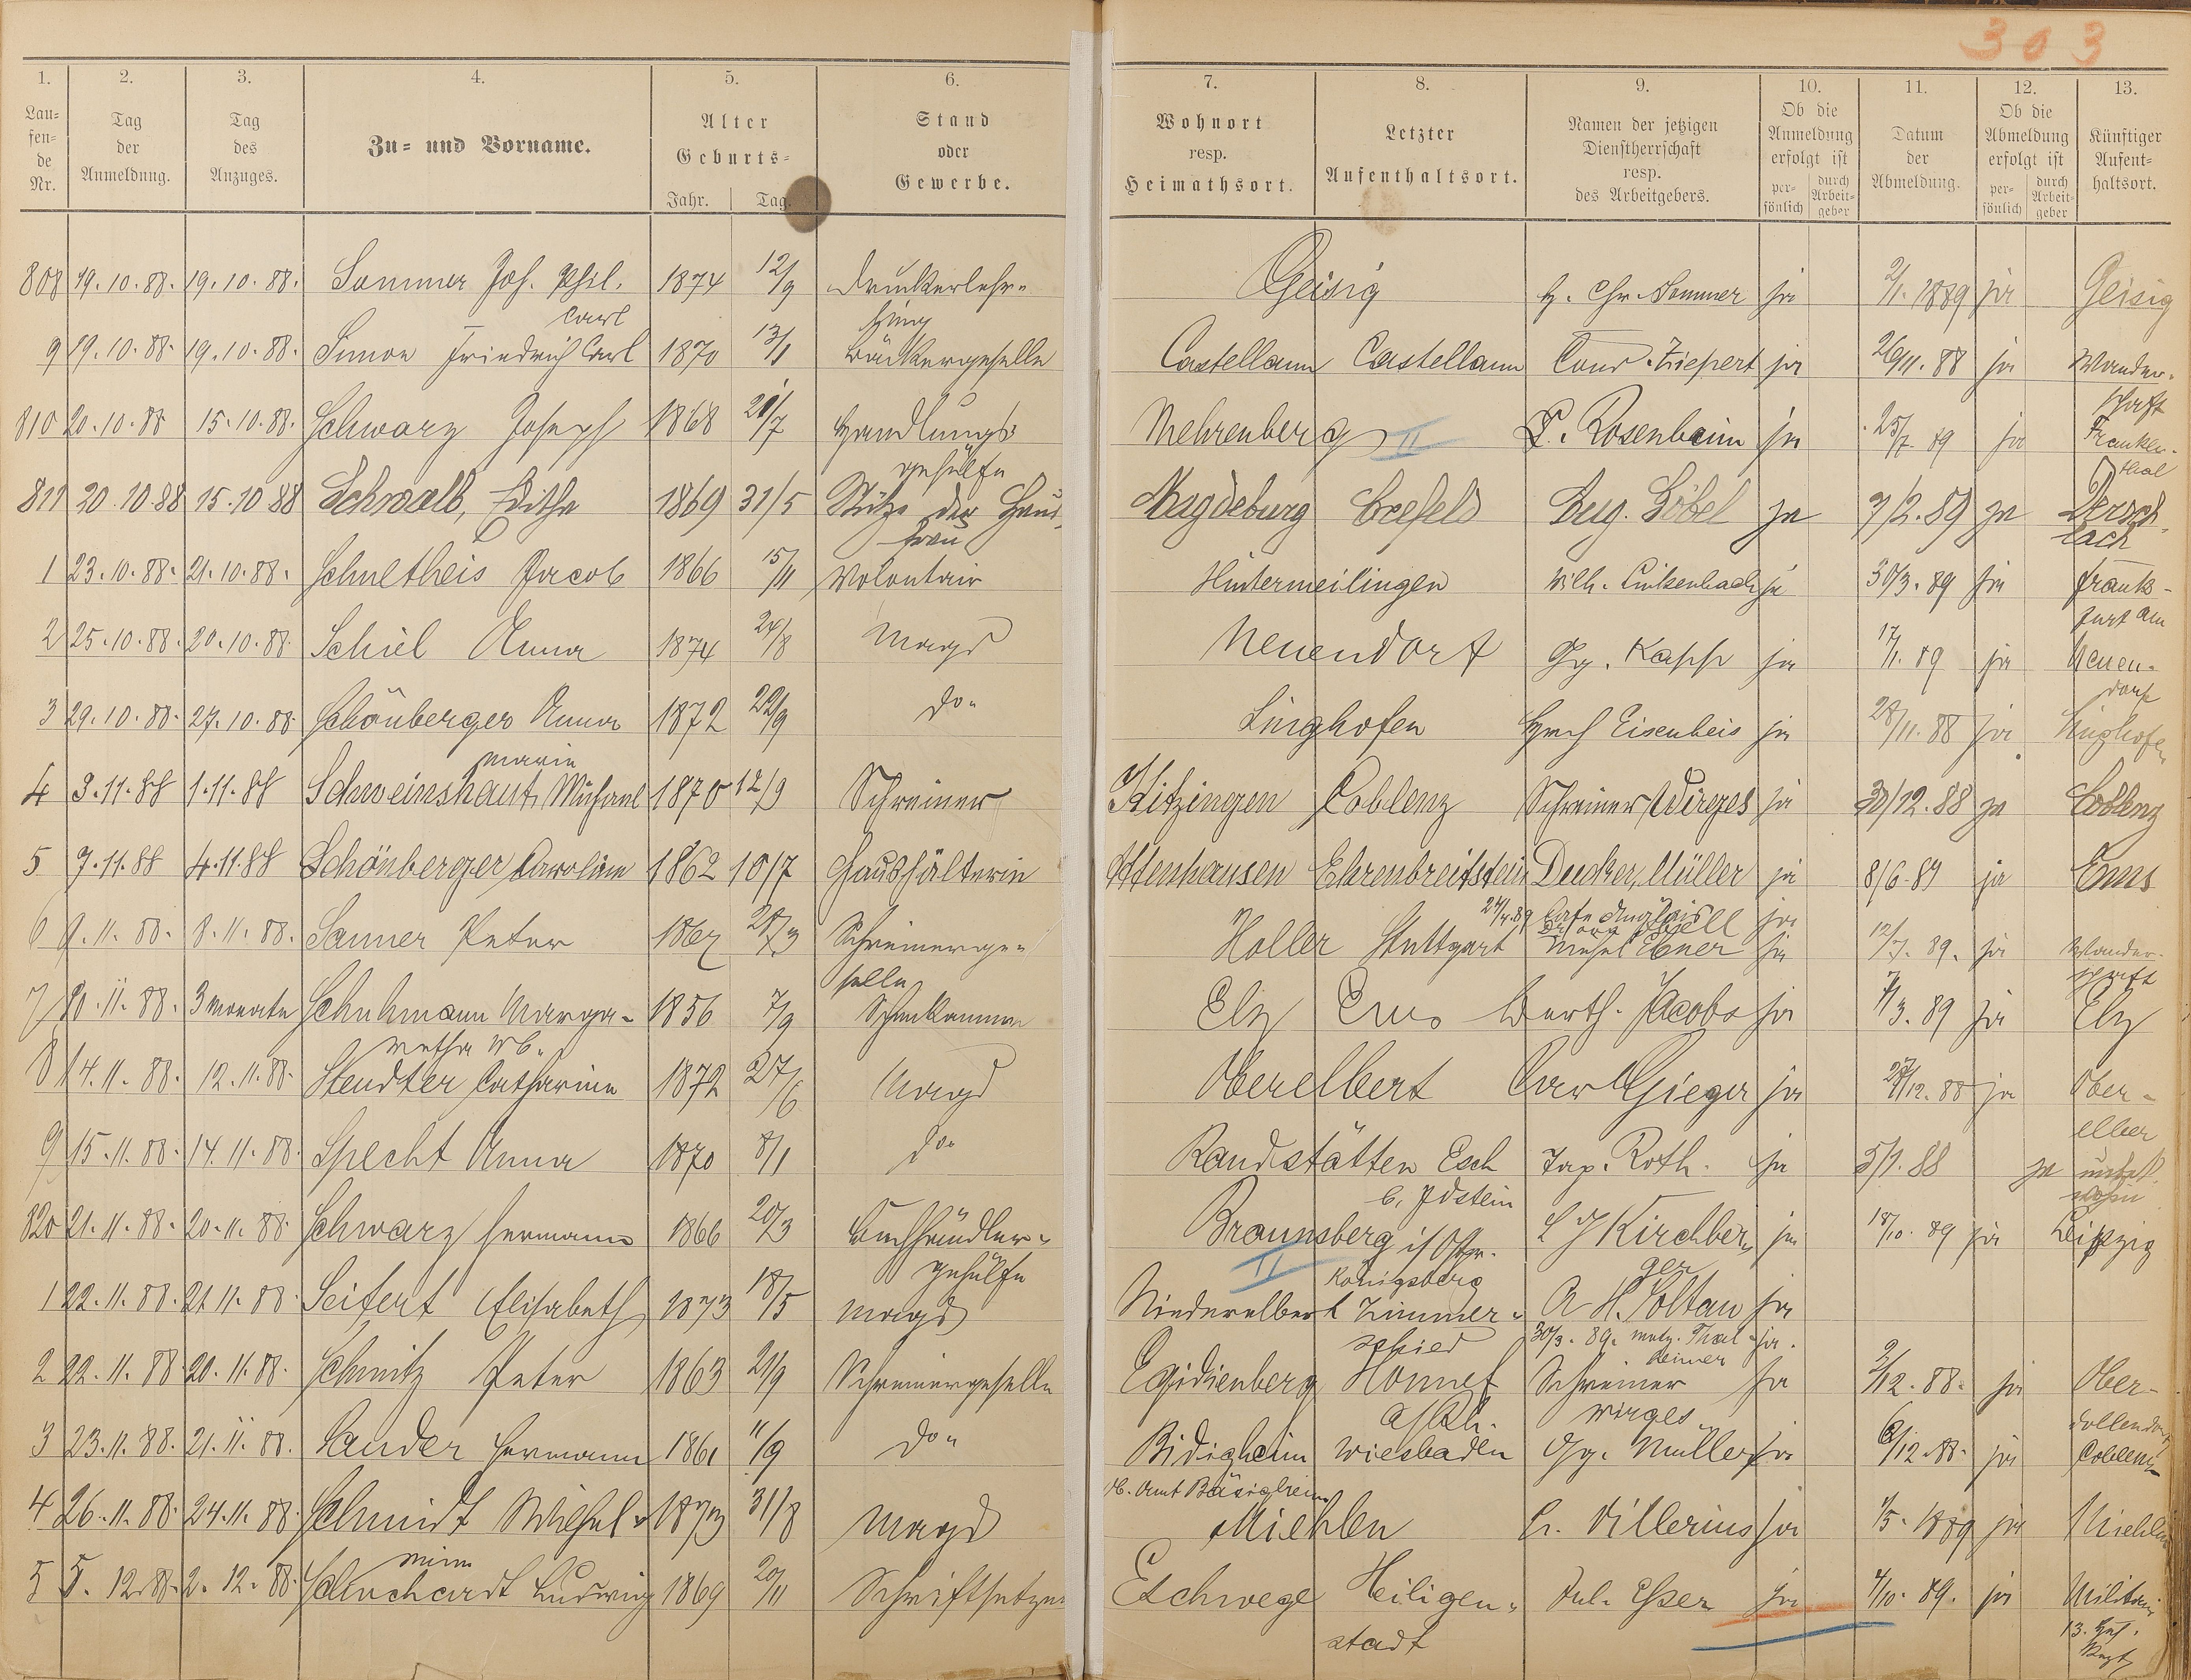 303
1. 2. 3. 4. 5. 6. 7. 8. 9. 10. 11. 12. 13.
Lau=fen=de Nr. Tag der Anmeldung. Tag des Anzuges. Zu= und Vorname. Alter Geburts= Jahr. Tag. Stand oder Gewerbe. Wohnort resp. Heimathsort. Letzter Aufenthaltsort. Namen der jetzigen Dienstherrschaft resp. des Arbeitgebers. Ob die Anmeldung erfolgt ist per=sönlich durch Arbeit=geber Datum der Abmeldung. Ob die Abmeldung erfolgt ist per=sönlich durch Arbeit=geber Künftiger Aufent=haltsort.
808 19.10.88. 19.10.88. Sommer Joh. Phil. 1874 12/9 Druckerlehr- Geisig H. Chr. Sommer ja 2/1. 1889 ja Geisig
Carl ling
9 19.10.88. 19.10.88. Simon Friedrich Carl 1870 13/1 Bäckergeselle Castellaun Castellaun ja 26/11. 88 ja Wander-
schaft
810 20.10.88 15.10.88. Schwarz Joseph 1868 21/7 Handlungs- Mehrenberg II L. Rosenheim ja 25/7. 89 ja Franken-
gehülfe thal
811 20.10.88 15.10.88 Schwalb, Editha 1869 31/5 Stütze der Haus- Magdeburg Crefeld Aug. Göbel ja 7/2.89 ja Dersch-
frau lach
1 23.10.88. 21.10.88. Schultheis Jacob 1866 15/11 Volontair Hintermeilingen Wilh. Linkenbach ja 30/3. 89 ja Frank-
furt am
2 25.10.88. 20.10.88. Schiel Anna 1874 24/8 Magd Neuendorf Gg. Kapp ja 17/1. 89 ja Neuen-
dorf
3 29.10.88. 27.10.88. Schönberger Anna 1872 22/9 do. Singhofen Hrch Eisenbeis ja 28/11. 88 ja Singhofen
Marie
4 3.11.88 1.11.88 Schweinshaut, Michael 1870 12/9 Schreiner Kitzingen Coblenz Schreiner Wirges ja 30/12.88 ja Coblenz
5 7.11.88 4.11.88 Schönberger Caroline 1862 10/7 Haushälterin Attenhausen Ehrenbreitstein Decker, Müller ja 8/6.89 ja Ems
24/4.89 Cafe ja
6 9.11.88. 8.11.88. Sanner Peter 1867 28/3 Schreinerge- Holler Stuttgart Ebner ja 12/7. 89. ja Wander-
selle schaft
7 10.11.88. 3 Monate Schuhmann Marga- 1856 7/9 Schenkamme Elz Ems Berth. Jacobs ja 7/3. 89 ja Elz
retha Wb.
8 14.11.88. 12.11.88. Stendter Catharina 1872 27/6 Magd Oberelbert Carl Gieger ja 27/12. 88 ja Ober-
elber
9 15.11.88. 14.11.88. Specht Anna 1870 8/1 do. Randstätten Esch Jap. Roth. ja 5/1.88 ja
b. Idstein
820 21.11.88. 20.11.88. Schwarz Hermann 1866 20/3 Buchhändler- Braunsberg i/Ostpr. L J Kirchber- ja 18/10. 89 ja Leipzig
gehülfe II Königsberg ger
1 22.11.88. 21.11.88. Seifert Elisabeth 1873 18/5 Magd Niederelbert Zimmer- A H. Soltau ja
schied 30/3. 89. Metz. Thal- ja.
heimer
2 22.11.88. 20.11.88. Schmitz Peter 1863 21/9 Schreinergeselle Egidienberg Honnef Schreiner ja 2/12.88. ja Ober-
a/Rh. Wirges. dollendorf
3 23.11.88. 21.11.88. Sander Hermann 1861 11/9 do. Bidigheim Wiesbaden Gg. Müller ja 6/12.88. ja Coblenz
4 26.11.88. 24.11.88. Schmidt Wilhel- 1873 31/8 Magd Miehlen C. Villerius ja 1/5. 1889 ja Miehlen
mine
5 5.12.88. 2.12.88. Ludwig 1869 20/11 Schriftsetzer Eschwege Heiligen- Jul. Esser ja 4/10. 89. ja Militair
stadt 13. Hus. Regt